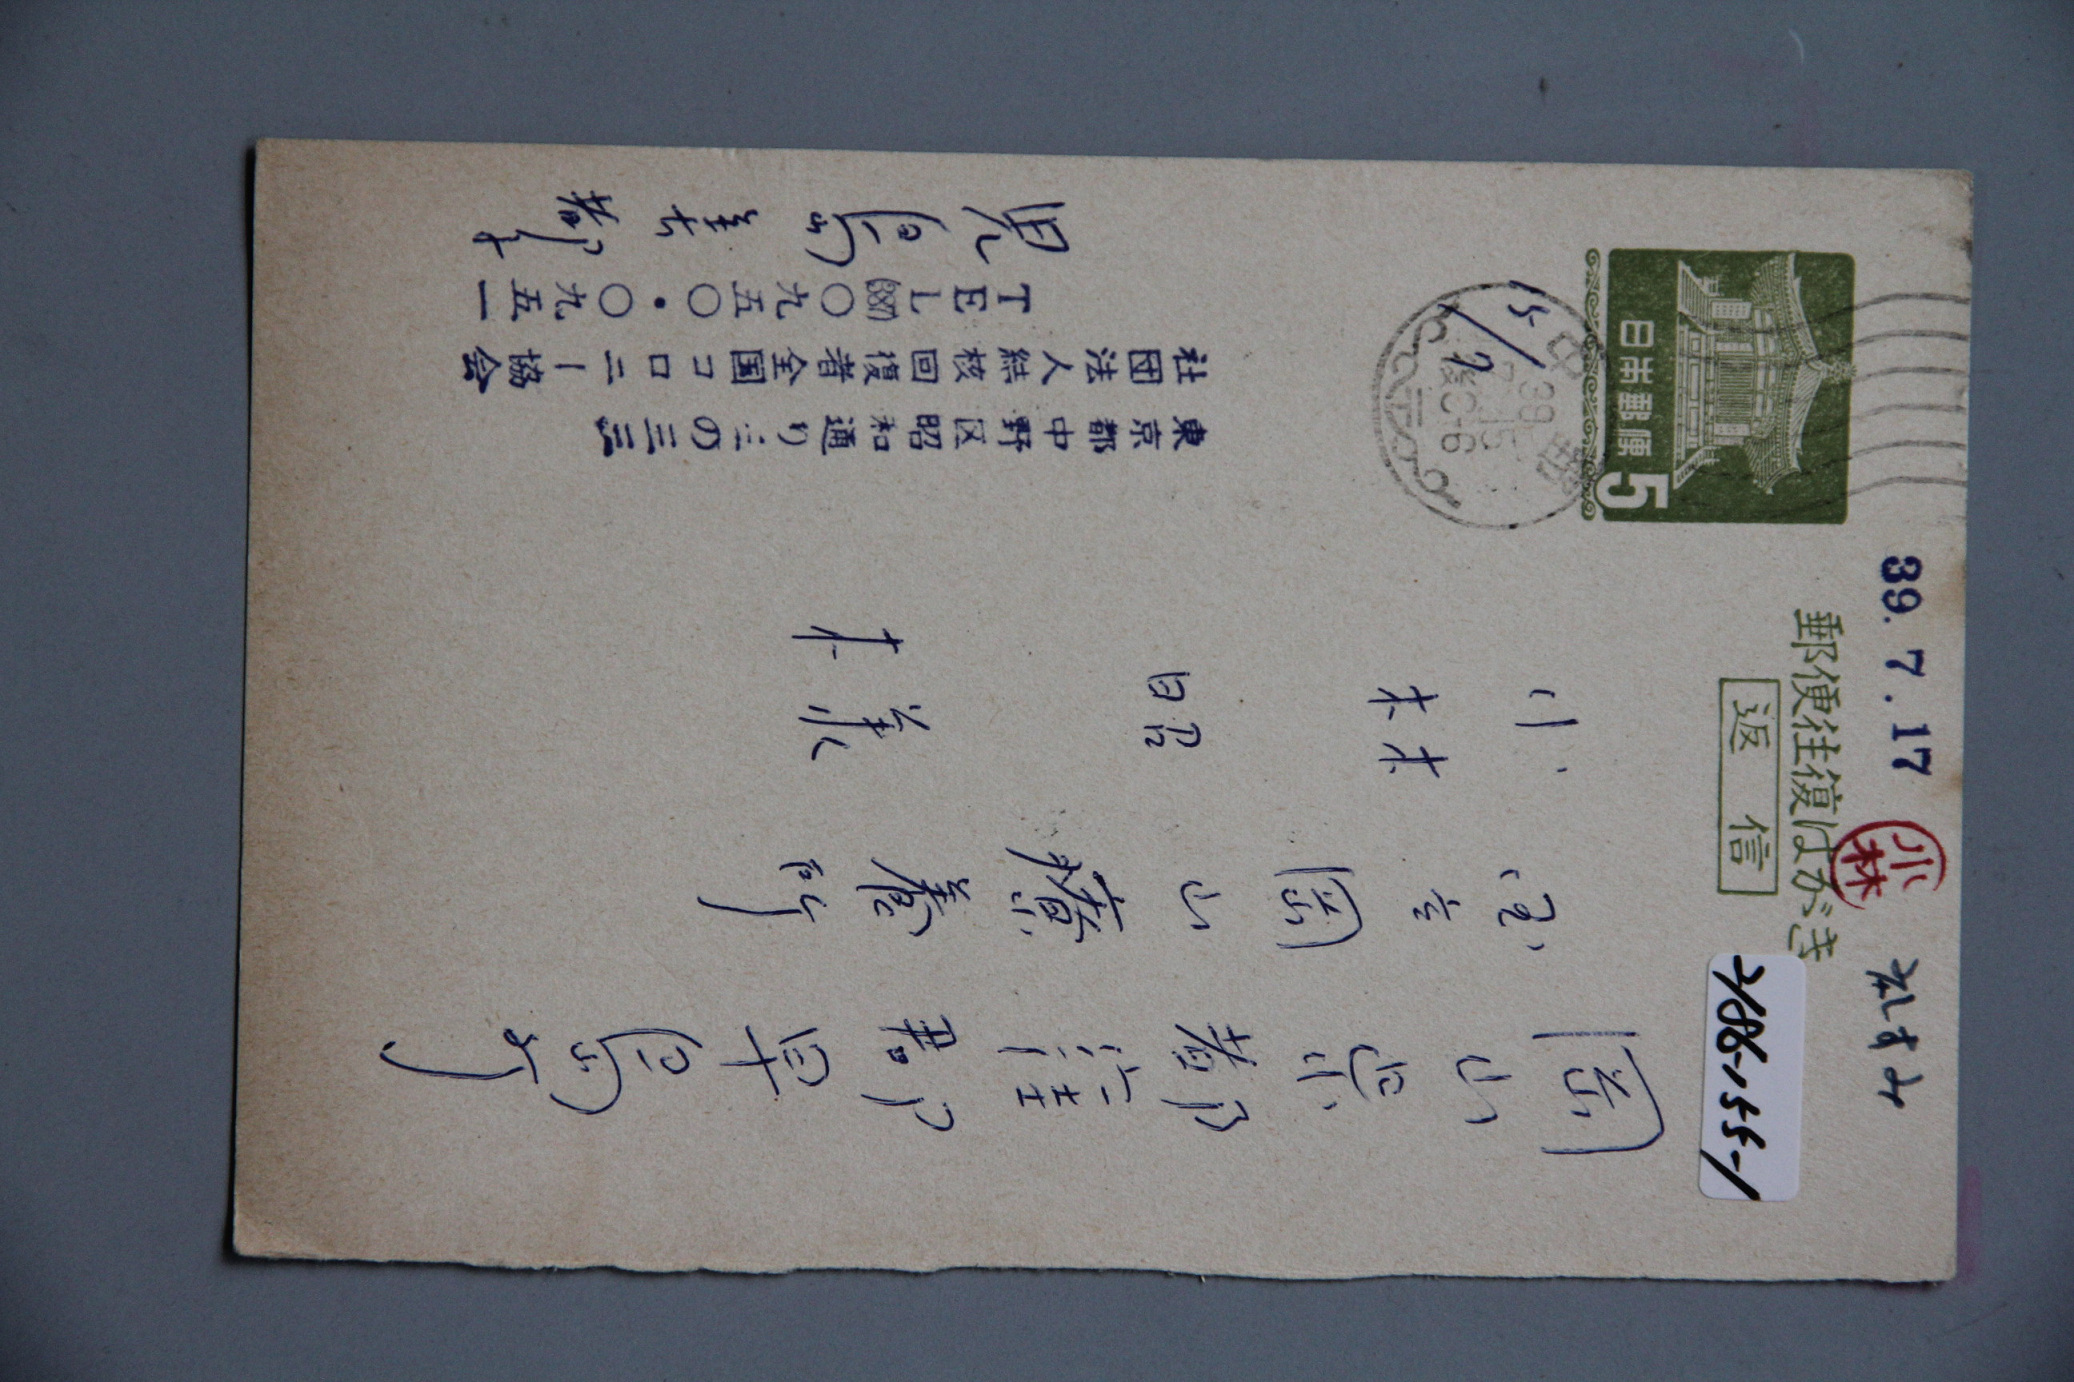 39.7.17
小林
礼すみ
郵便往復はがき
返信
2186-155-1
日本郵便
5
中野
39
15
後0-6
15/7
岡山県都窪郡早島町
国立岡山療養所
小林昭美様
東京都中野区昭和通り三の三三
社団法人結核回復者全国コロニー協会
TEL(387)〇九五〇・〇九五一
児島美都子